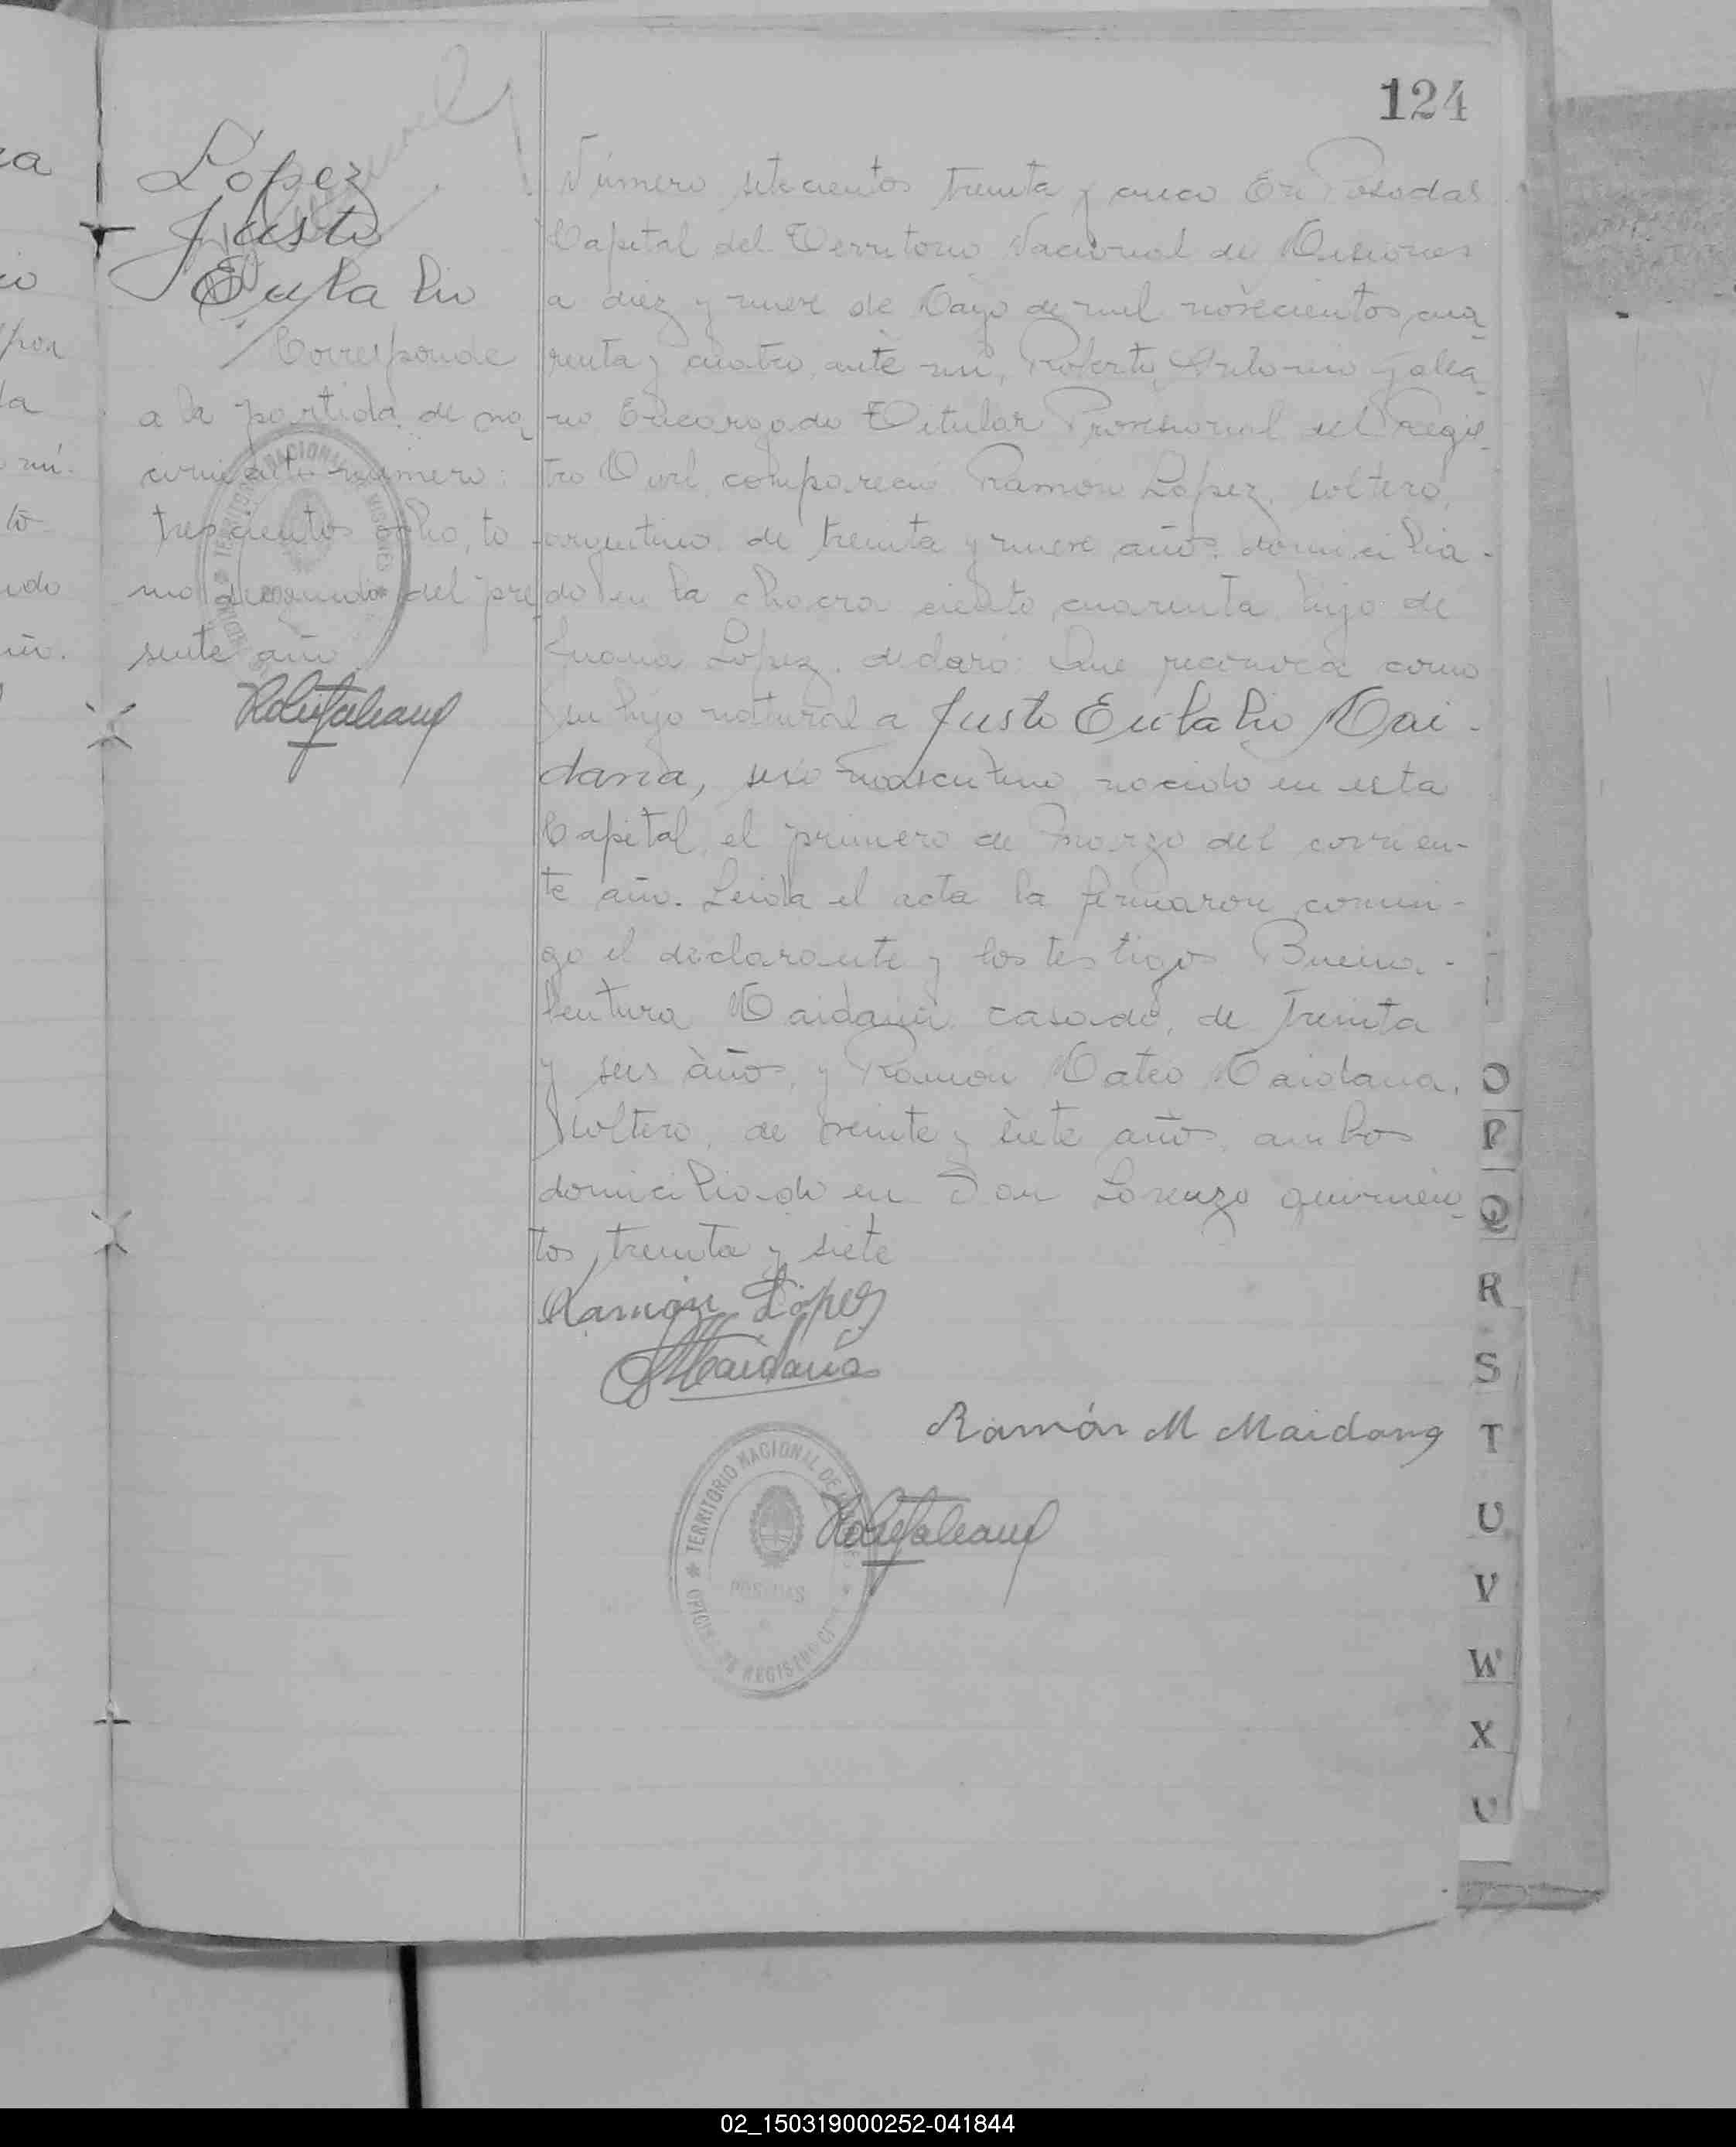 124
López
Justo
Eulalio
Corresponde
a la partida de na
cimiento número:
trescientos ocho, to
mo segundo del pre
sente año
Número setecientos treinta y cinco En Posadas
Capital del Territorio Nacional de Misiones
a diez y nueve de Mayo de mil novecientos cua
renta y cuatro, ante mi, Roberto Antonio Galea
no Encargado Titular Provisional del Regis
tro Civil, compareció Ramón López, soltero,
argentino, de treinta y nueve años, domicilia-
do en la chacra ciento cuarenta, hijo de
Juana López, declaró: Que reconoce como
su hijo natural a Justo Eulalio Mai-
dana, sexo masculino nacido en esta
Capital, el primero de Marzo del corrien-
te año. Leida el acta la firmaron conmi-
go el declarante y los testigos Buena-
ventura Maidana casado, de treinta
y seis años, y Ramón Mateo Maidana,
soltero, de veinte y siete años, ambos
domiciliado en San Lorenzo quinien
tos treinta y siete
Ramón López
Maidana
Ramón M Maidana
TERRITORIO NACIONAL DE
POSADAS
O
P
Q
R
S
T
U
V
W
X
02_150319000252-041844